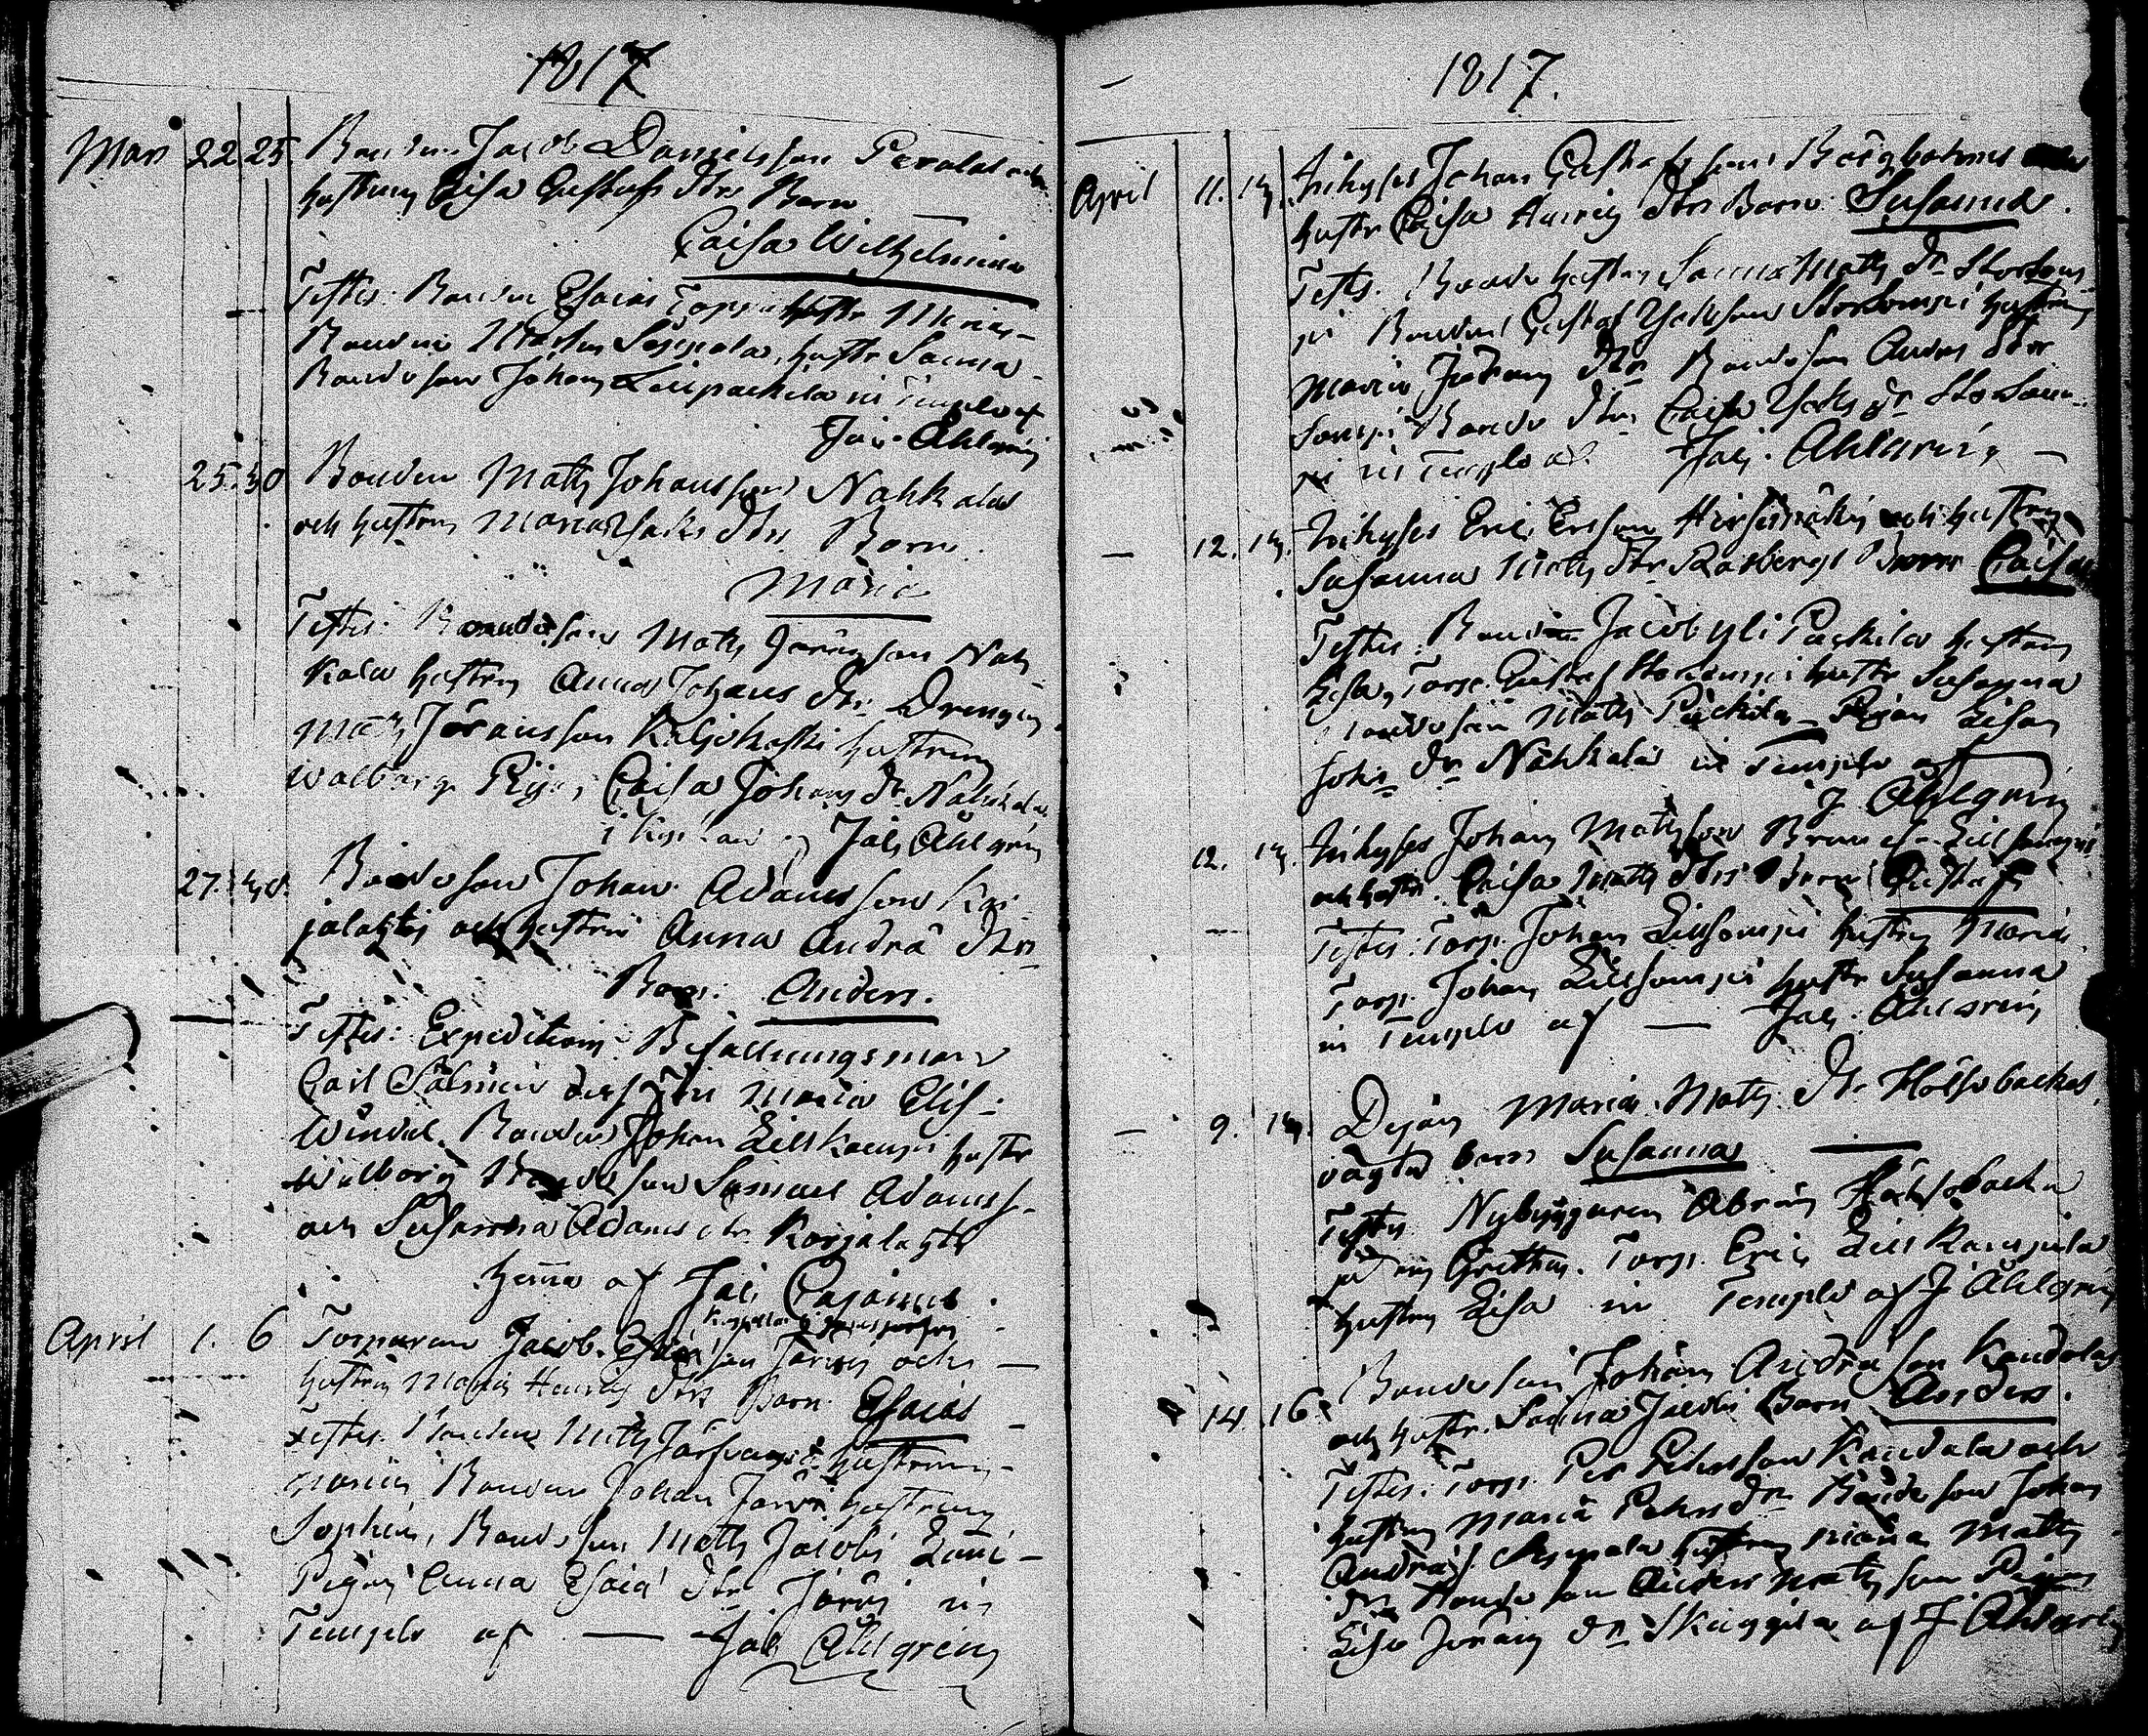 1817
Mars 22 25 Bonden Jacob Danielsson Perala och
hustrun Caisa Gustafs dtrs Barn
Caisa Wilhelmina
Testes: Bonden Esaias Toppi hustr Maria
Bonden Seppala, hustr Sanna
Bondeson Johan Leipackila in Templo af
Jac. Ahlgren
25. 30 Bonden Matts Johansson Nahkala
och hustrun Maria Isaks dtrs Barn
Maria
Testes: Bondeson Matts Göransson Nah
kala hustrun Anna Johans dtr Drengen
Matts Göransson Kaljokoski hustrun
Walborg Pigan Caisa Johans dr Nahkala
af Jac. Ahlgren
27. Bondeson Johan Adamsson Kar
jalahti och hustrun Anna Andrä dtrs
Barn: Anders.
Testes: Expeditions Befallningsman
Carl Salmen Maria Elis
Bonden Johan Lillkaumpi hustr
Walborg Bondeson Samuel Adamss.
och Susanna Adams dtr Karjalahti
hema af Jac. Cajanus
April 1. 6 Torparen Jacob Esaiæson Järvi och
hustrun Maria Henrics dtrs Barn Esaias
Testes. Bonden Matts hustrun
Maria Bonden Johan Järvi hustrun
Sophia, Bondeson Matts Jacobs
Pigan Anna Esaiæ dtr Järvi in
Templo af — Jac. Ahlgren
1817.
April 11. 14. Inhyses Johan Gustafsson Borgbohms
hustr Caisa Henrics dtrs Barn Susanna.
Testes. Bonde hustrun Sanna Matts dr Storsom
pi Bonden Gustaf Isaksson Storsompi hustrun
Maria Johans dtr Bondeson Anders Stor
sompi Bonde dtr Caisa Isaks dr Storsom
pi in Templo af Jac. Ahlgren
— 12. 14. Inhyses Eric Ersson Hirsimäki och hustrun
Susanna Matts dtr Rosberg Barn Caisa
Testes: Bonden Jacob yli Packila hustrun
Lisa, Torp. Gustaf Storsompi hustr Susanna
Bondeson Matts Packila Pigan Lisa
Joh. dr Nahkala in Templo af
J Ahlgren
12. 14. Inhyses Johan Mattsson Lillsompi
och hustr. Caisa Matts dtrs Barn Gustaf
Testes: Torp. Johan Lillsompi hustrun Maria
Torp. Johan Lillsompi hustr Susanna
in Templo af — Jac. Ahlgren
— 9. 14. Dejan Maria Matts dtr Holsobackas
oägta barn Susanna —
Testes Nybyggaren Abram Holsobacka
Grettha. Torp. Eric Lillkaumpila
hustrun Lisa in Templo af J Ahlgren
14. 16. Bondeson Johan Andräson Kandola
och hustr. Sanna Jacobs Barn Anders.
Testes: Torp. Per Pehrsson Kandola och
hustrun Maria Pehrs dr Bondeson Johan
Andräs. hustrun Maria Matts
dr Bondeson Anders Mattsson Pigan
Lisa Jörans dr Skuggila af J Ahlgren